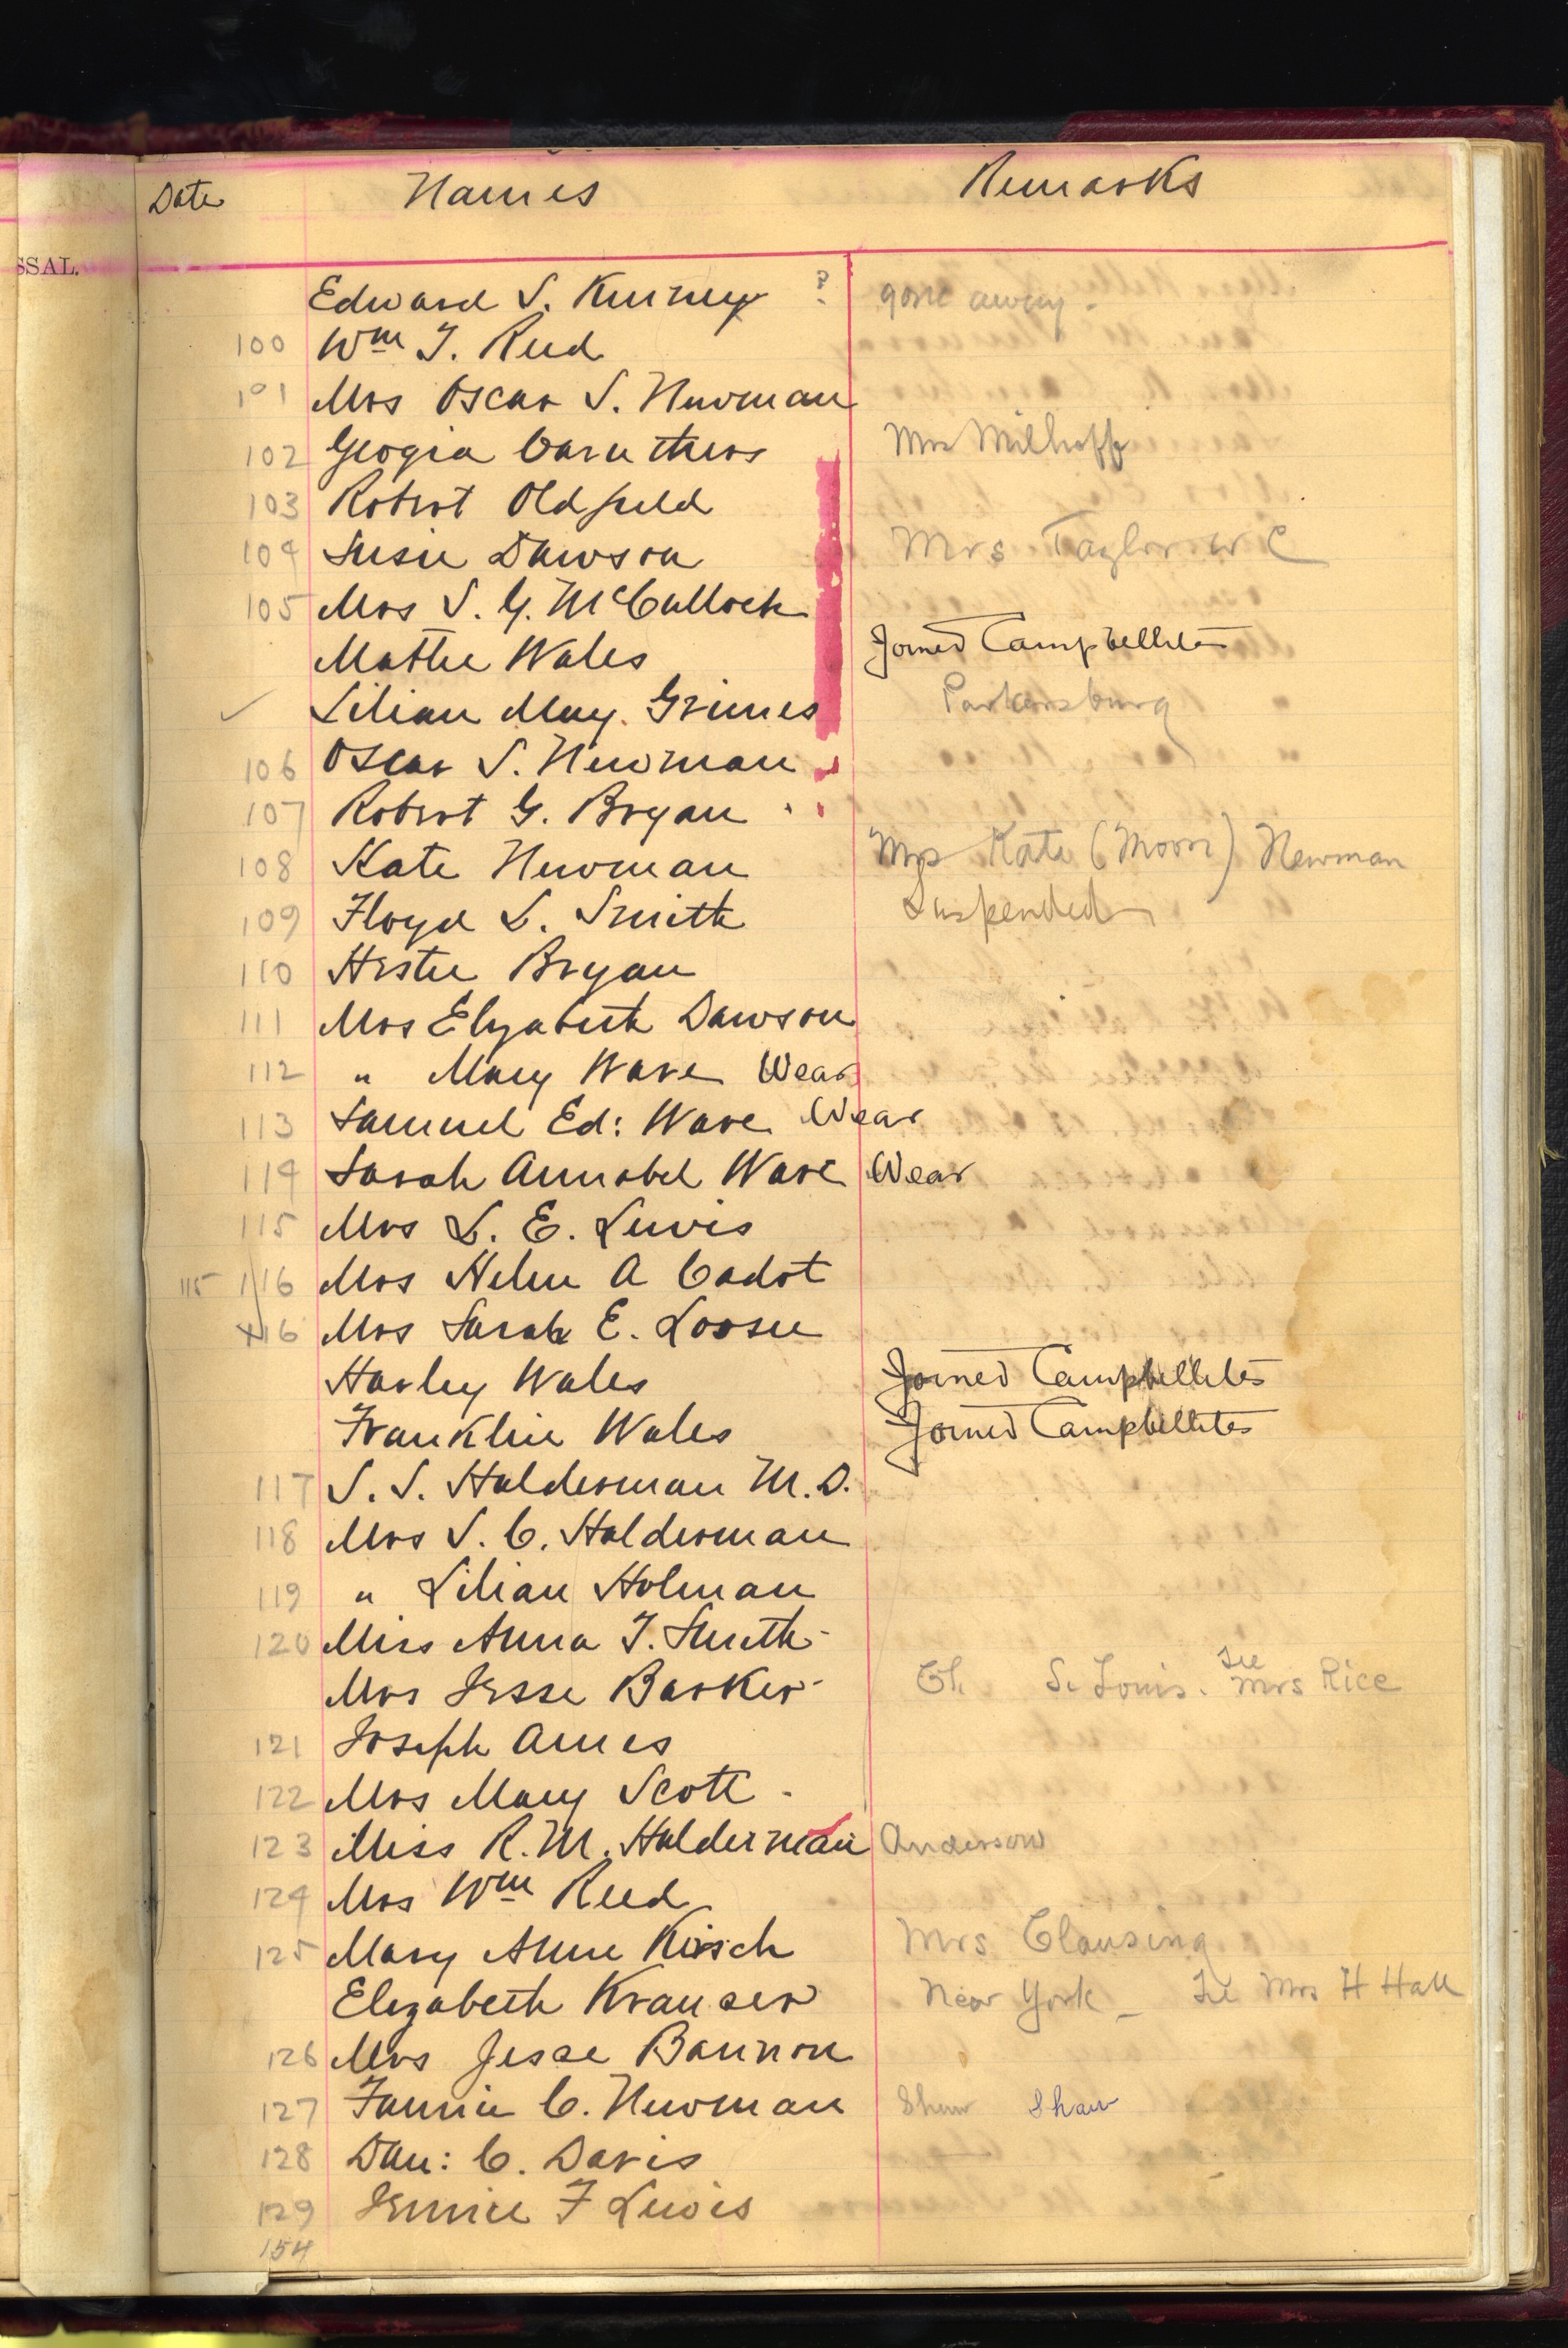 Date Names Remarks
SSAL.
Edward S. Kinney ? gone away -
100 Wm T. Reed
101 Mrs Oscar S. Newman
102 Geogia Caruthers Mrs Milhoff
103 Robert Oldfield
104 Susie Dawson Mrs Taylor W C
105 Mrs S. G. McCullock
Mattie Wales Joined Campbellites
✓ Lilian May. Grimes Parkersburg
106 Oscar S. Newman
107 Robert G. Bryan
108 Kate Newman Mrs Kate (Moon) Newman
109 Floyd L. Smith Suspended
110 Hester Bryan
111 Mrs Elizabeth Dawson
112 " Mary Ware Wear
113 Samuel Ed: Ware Wear
114 Sarah Annabel Ware Wear
115 Mrs L. E. Lewis
115 116 Mrs Helen A Cadot
116 Mrs Sarah E.
Harley Wales Joined Campbellites
Franklin Wales Joined Campbellites
117 S. S. Halderman M.D.
118 Mrs S. C. Halderman
119 " Lilian Holman
120 Miss Anna T. Smith -
Mrs Jesse Barker - St Louis. See Mrs Rice
121 Joseph Ames
122 Mrs Mary Scott -
123 Miss R. M. Halderman Anderson
124 Mrs Wm Reed
125 Mary Anne Kirsch Mrs Clausing
Elizabeth Krauser New York - See Mrs H Hall
126 Mrs Jesse Bannon
127 Fannie C. Newman Shaw Shaw
128 Dan: C. Davis
129 Jennie F Lewis
154